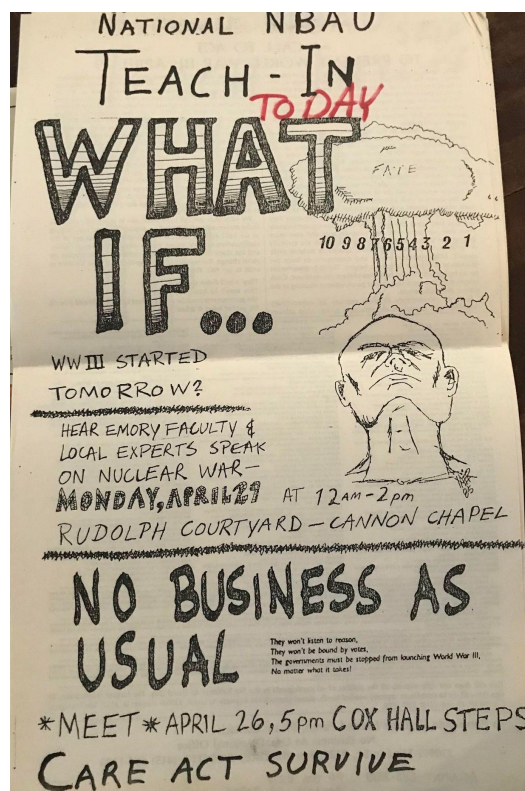 NATIONAL NBAU
TEACH-IN
TODAY
WHAT
IF...
FATE
10 9 8 7 6 5 4 3 2 1
WW III STARTED
TOMORROW?
HEAR EMORY FACULTY &
LOCAL EXPERTS SPEAK
ON NUCLEAR WAR—
MONDAY, APRIL 29 AT 12AM-2pm
RUDOLPH COURTYARD — CANNON CHAPEL
NO BUSINESS AS
USUAL
They won't listen to reason,
They won't be bound by votes,
The governments must be stopped from launching World War III,
No matter what it takes!
*MEET* APRIL 26, 5pm COX HALL STEPS
CARE ACT SURVIVE